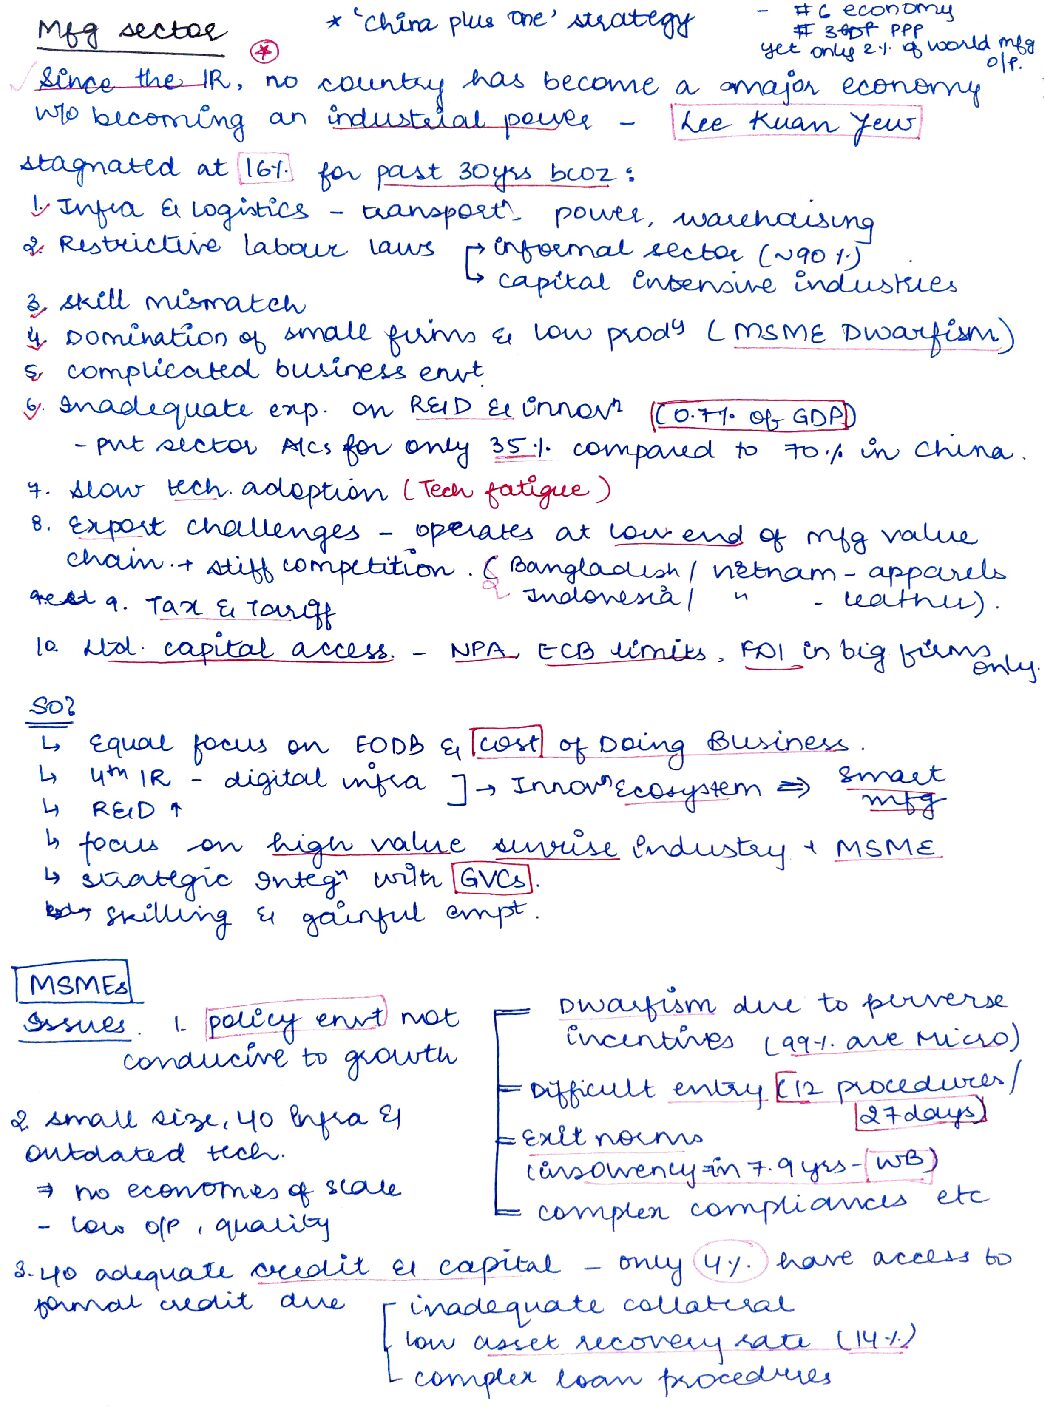 Mfg sector
* 'China plus one' strategy
- #6 economy
# 3 GDP PPP
yet only 2% of world mfg o/p.
Since the IR, no country has become a major economy
w/o becoming an industrial power - Lee Kuan Yew
stagnated at 16% for past 30yrs bcoz:
1. Infra & logistics - transportn, power, warehousing
2. Restrictive labour laws → informal sector (~90%)
↳ capital intensive industries
3. skill mismatch
4. Domination of small firms & low prody (MSME Dwarfism)
5. complicated business envt
6. Inadequate exp. on R&D & innovn (0.7% of GDP)
- pvt sector A/Cs for only 35% compared to 70% in China.
7. slow tech. adoption (Tech fatigue)
8. Export challenges - operates at low end of mfg value
chain + stiff competition. (Bangladesh / Vietnam - apparels
Indonesia / " - leather).
9. Tax & Tariff
10. Ltd. capital access. - NPA, ECB limits, FDI in big firms only.
SO?
↳ Equal focus on EODB & cost of Doing Business.
↳ 4th IR - digital infra ] → Innovn Ecosystem ⇒ Smart mfg
↳ R&D ↑
↳ focus on high value sunrise industry + MSME
↳ strategic Integn with GVCs.
↳ skilling & gainful empt.
MSMEs
Issues. 1. policy envt not
conducive to growth
Dwarfism due to perverse
incentives (99% are Micro)
- Difficult entry (12 procedures/
27 days)
- Exit norms
(insolvency in 7.9 yrs - WB)
- complex compliances etc
2. small size, ↓o infra &
outdated tech.
⇒ no economies of scale
- low o/p, quality
3. ↓o adequate credit & capital - only 4% have access to
formal credit due
inadequate collateral
low asset recovery rate (14%)
complex loan procedures